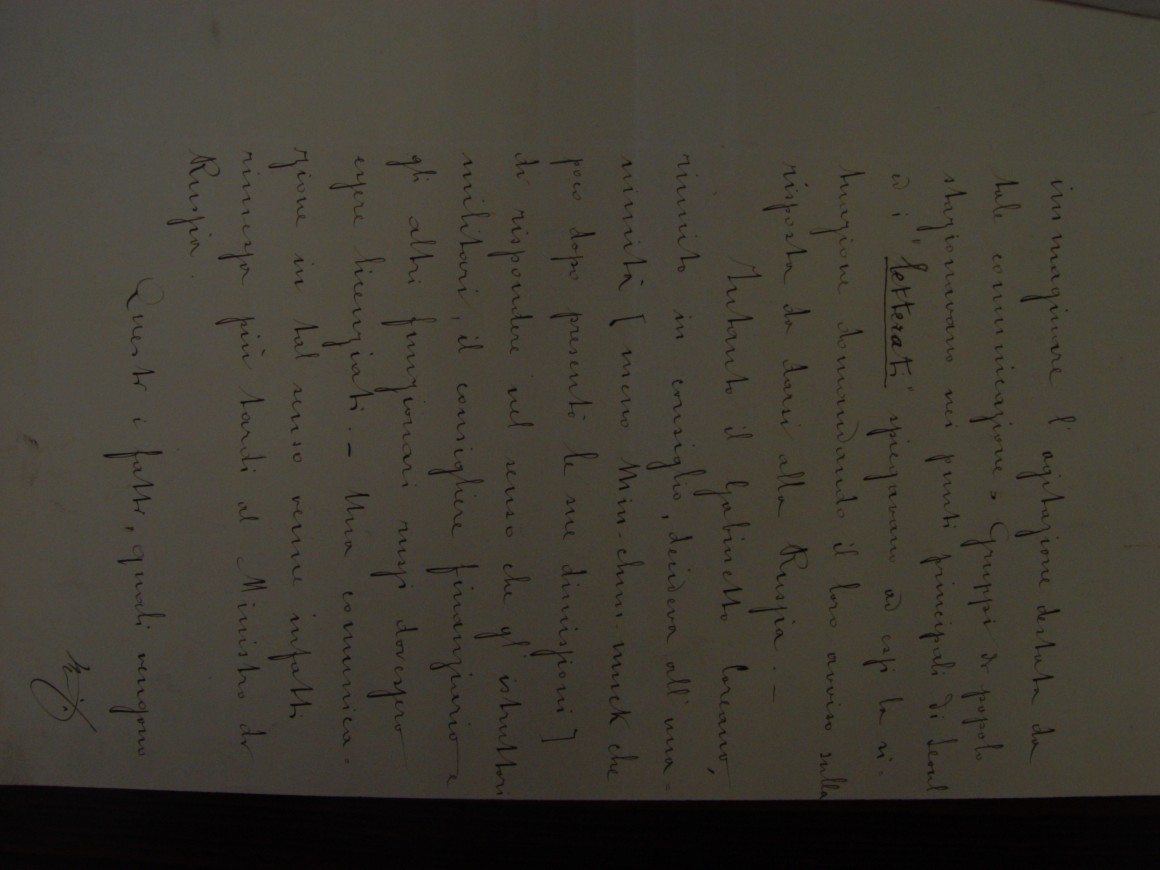 immaginare l'agitazione destata da
tale comunicazione. Gruppi di popolo
stazionavano nei punti principali di Seoul
ed i "letterati" spiegavano ad essi la si-
tuazione domandando il loro avviso sulla
risposta da darsi alla Russia. –
Intanto il Gabinetto Coreano,
riunito in consiglio, decideva all'una-
nimità [meno Min-chun-muck che
poco dopo presentò le sue dimissioni]
di rispondere nel senso che gl'istruttori
militari, il consigliere finanziario e
gli altri funzionari russi dovessero
essere licenziati. – Una comunica-
zione in tal senso venne infatti
rimessa più tardi al Ministro di
Russia.
Questi i fatti, quali vengono